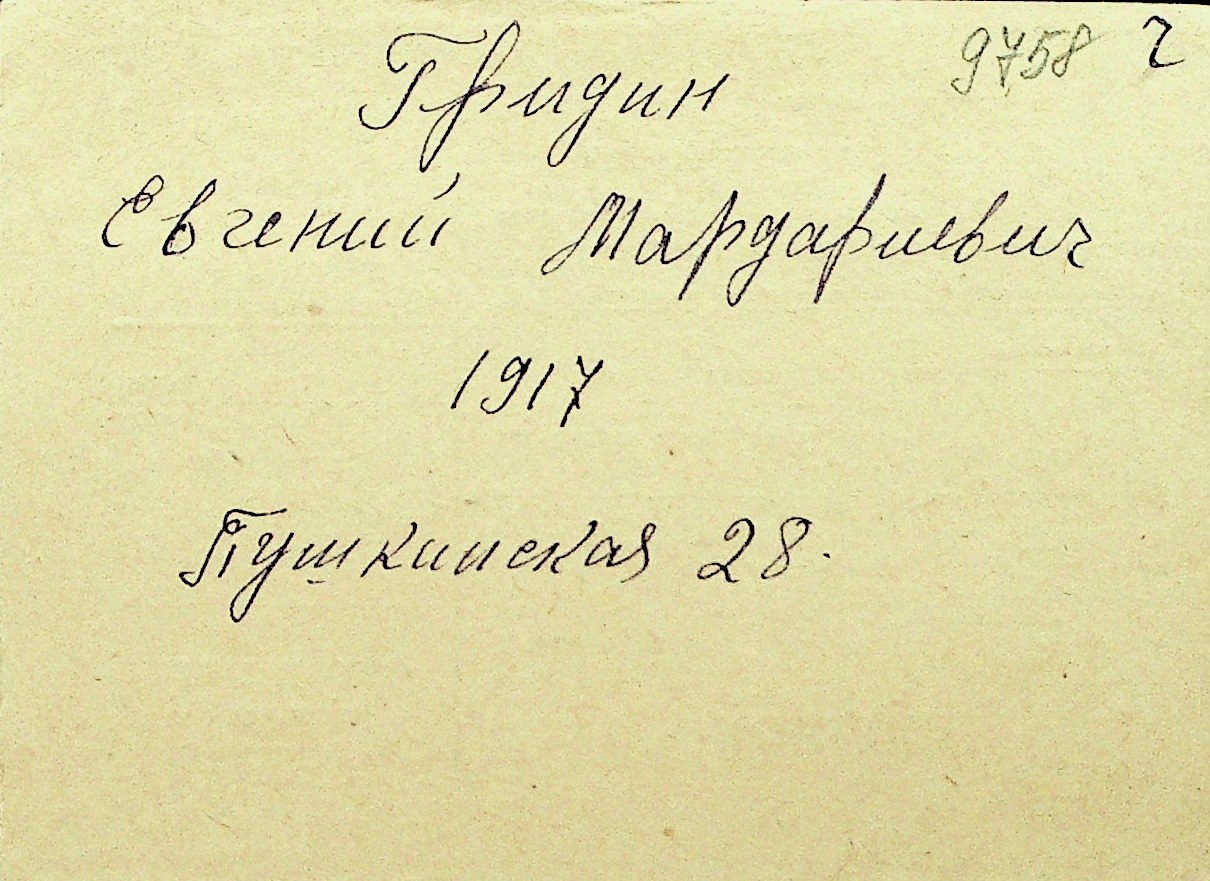 9758 г
Гридин
Евгений Мардариевич
1917
Пушкинская 28.